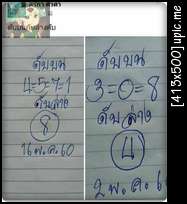 ดับบน
4=5=7=1
ดับล่าง
8
16 พ.ค. 60
ดับบน
3=0=8
ดับล่าง
4
2 พ.ค. 6
[413x500] upic.me